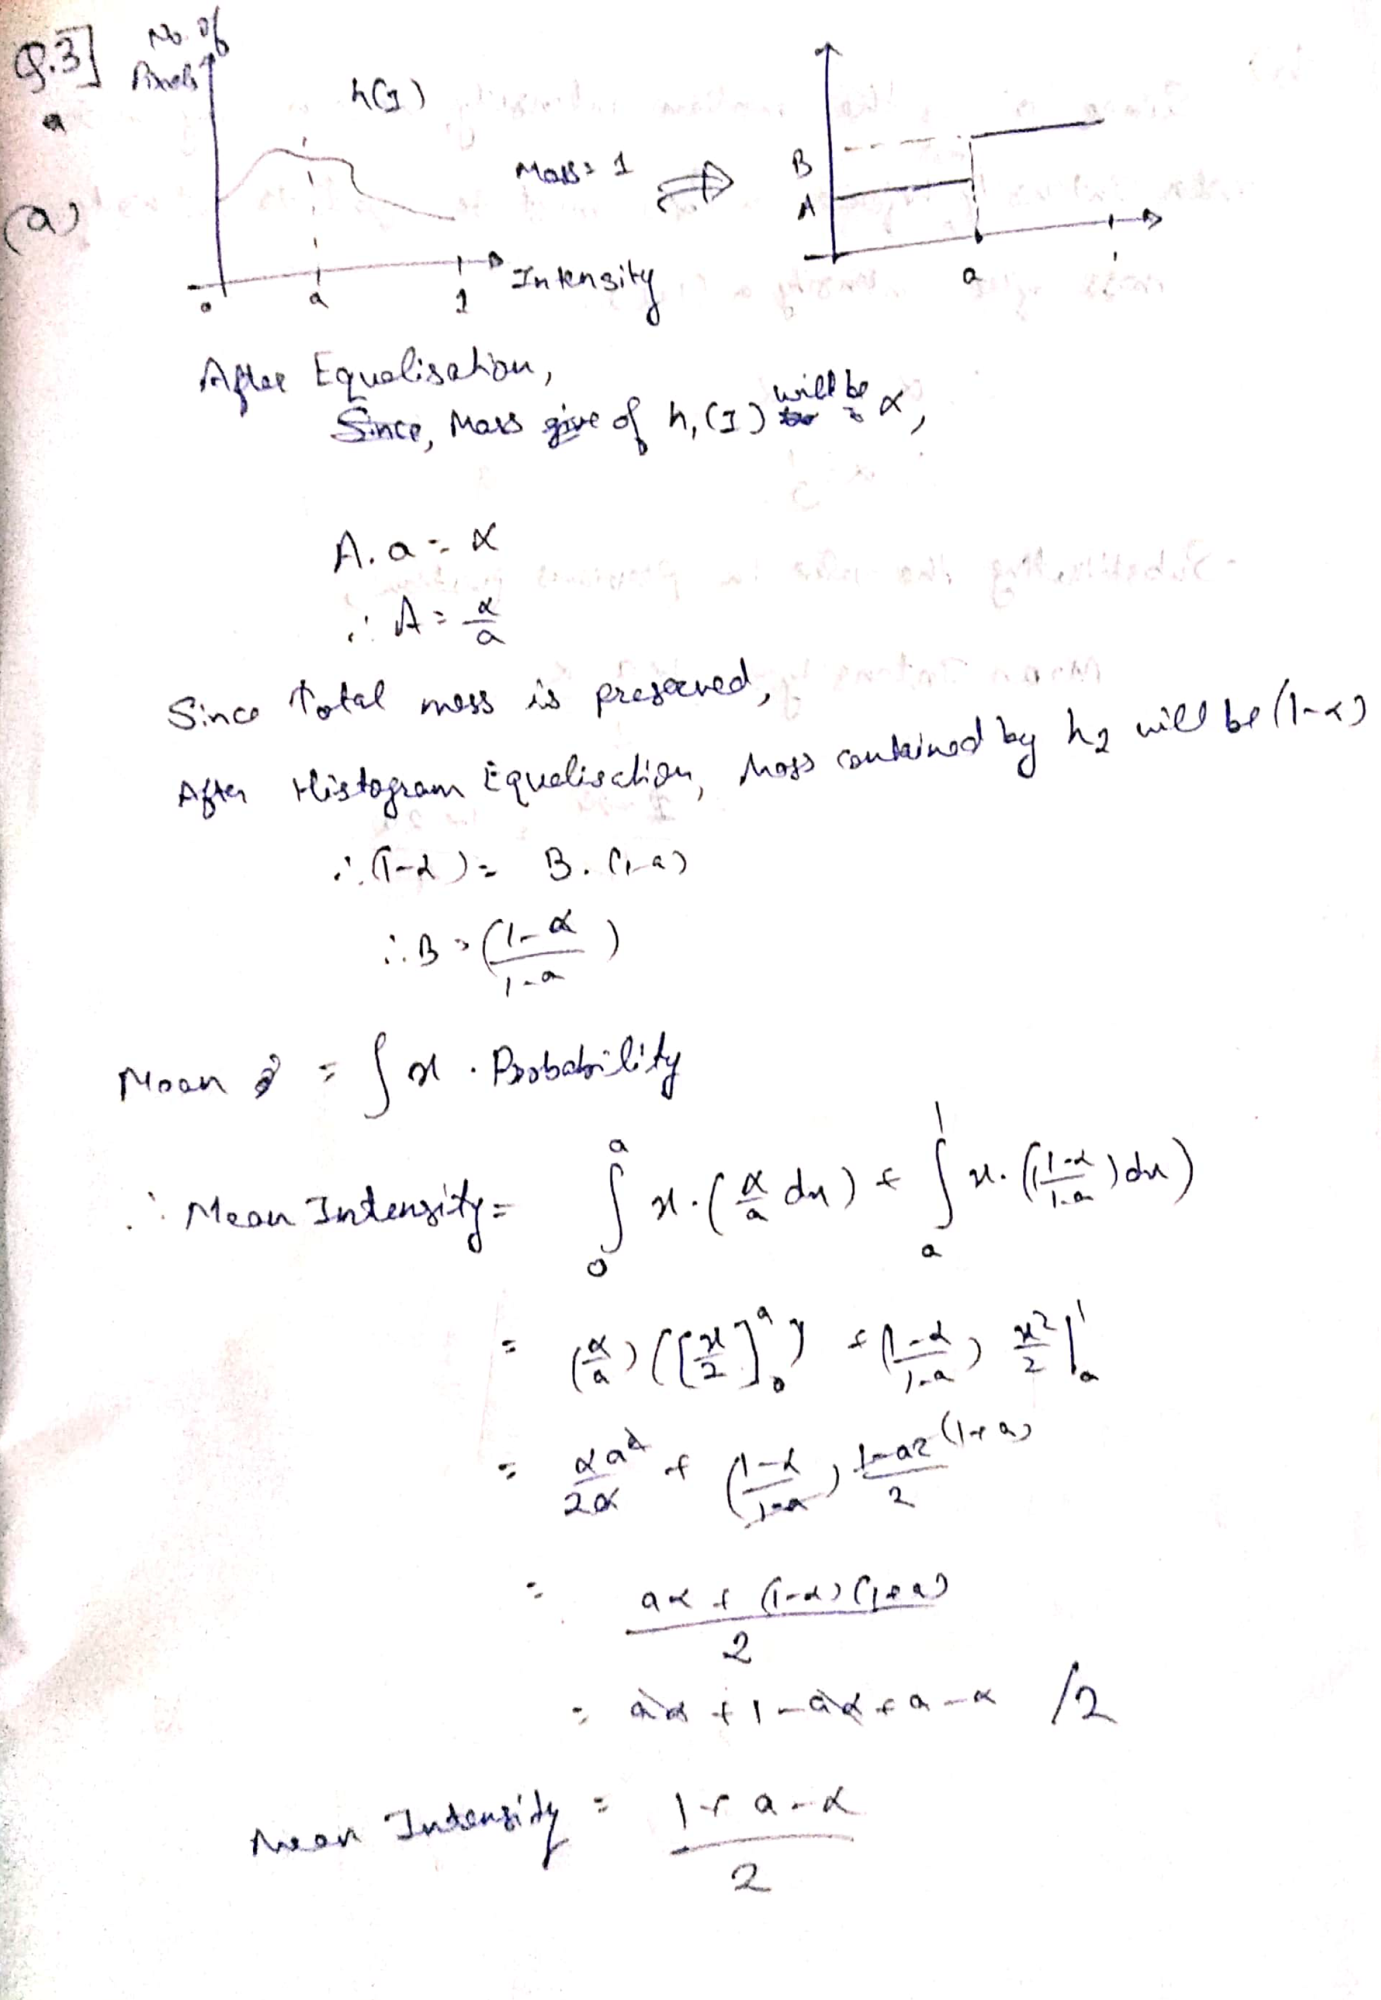 Q.3]
a
(a)
No. of
Pixels
h(I)
0
a
1
Intensity
Mass = 1
⇒
B
A
a
1
After Equalisation,
Since, Mass give of h₁(I) will be α,
A. a = α
∴ A = α/a
Since Total mass is preserved,
After Histogram Equalisation, Mass contained by h₂ will be (1-α)
∴ (1-α) = B. (1-a)
∴ B = (1-α / 1-a)
Mean = ∫ x . Probability
∴ Mean Intensity = ∫₀ᵃ x.(α/a dx) + ∫ₐ¹ x.((1-α / 1-a) dx)
= (α/a) ([x/2]₀ᵃ) + (1-α / 1-a) x²/2 |ₐ¹
= αa²/2α + (1-α / 1-a) 1-a2 (1+a) / 2
= aα + (1-α)(1+a) / 2
= aα + 1 - aα + a - α /2
Mean Intensity = 1 + a - α / 2